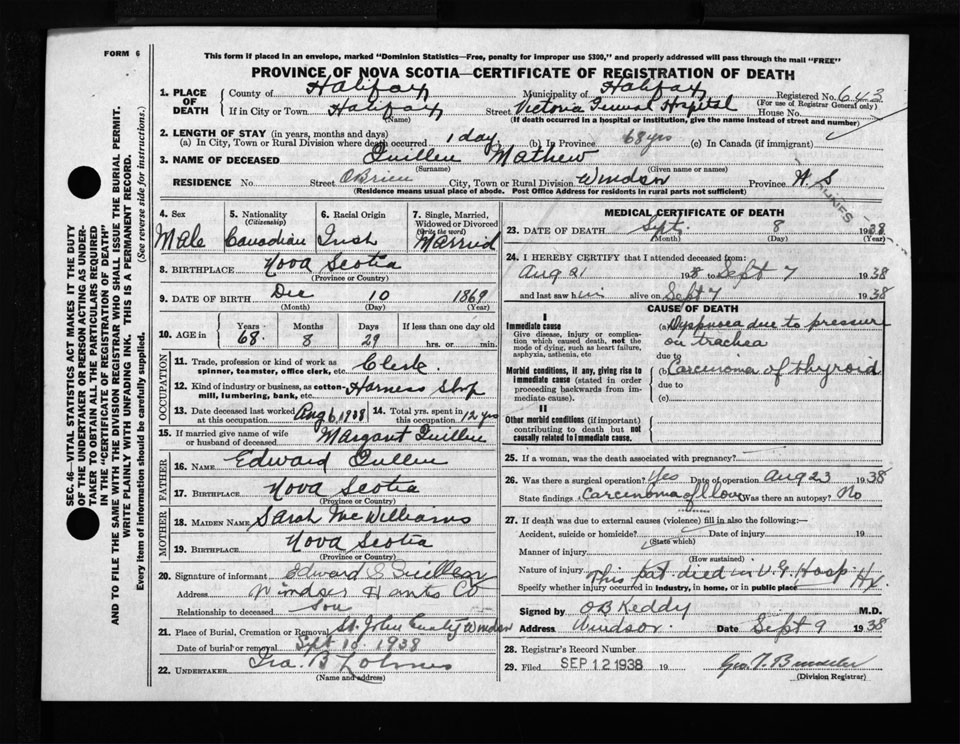 FORM 6
This form if placed in an envelope, marked "Dominion Statistics—Free, penalty for improper use $300," and properly addressed will pass through the mail "FREE"
PROVINCE OF NOVA SCOTIA—CERTIFICATE OF REGISTRATION OF DEATH
SEC. 46—VITAL STATISTICS ACT MAKES IT THE DUTY
OF THE UNDERTAKER OR PERSON ACTING AS UNDER-
TAKER TO OBTAIN ALL THE PARTICULARS REQUIRED
IN THE "CERTIFICATE OF REGISTRATION OF DEATH"
AND TO FILE THE SAME WITH THE DIVISION REGISTRAR WHO SHALL ISSUE THE BURIAL PERMIT.
WRITE PLAINLY WITH UNFADING INK. THIS IS A PERMANENT RECORD.
Every item of information should be carefully supplied. (See reverse side for instructions.)
1. PLACE OF DEATH
County of Halifax Municipality of Halifax Registered No. 643
(For use of Registrar General only)
If in City or Town Halifax Street Victoria General Hospital House No.
(Name) (If death occurred in a hospital or institution, give the name instead of street and number)
2. LENGTH OF STAY (in years, months and days)
(a) In City, Town or Rural Division where death occurred 1 day (b) In Province 68 yrs (c) In Canada (if immigrant)
3. NAME OF DECEASED Quillen Mathew
(Surname) (Given name or names)
RESIDENCE No. Street O'Brien City, Town or Rural Division Windsor Province N.S
(Residence means usual place of abode. Post Office Address for residents in rural parts not sufficient)
4. Sex Male
5. Nationality (Citizenship) Canadian
6. Racial Origin Irish
7. Single, Married, Widowed or Divorced (Write the word) Married
8. BIRTHPLACE Nova Scotia
(Province or Country)
9. DATE OF BIRTH Dec 10 1869
(Month) (Day) (Year)
10. AGE in Years 68. Months 8 Days 29 If less than one day hrs. or min.
OCCUPATION
11. Trade, profession or kind of work as spinner, teamster, office clerk, etc. Clerk.
12. Kind of industry or business, as cotton-mill, lumbering, bank, etc. Harness Shop
13. Date deceased last worked at this occupation Aug 6, 1938
14. Total yrs. spent in this occupation 12 yrs
15. If married give name of wife or husband of deceased Margaret Quillen
FATHER
16. NAME Edward Quillen
17. BIRTHPLACE Nova Scotia
(Province or Country)
MOTHER
18. MAIDEN NAME Sarah McWilliams
19. BIRTHPLACE Nova Scotia
(Province or Country)
20. Signature of informant Edward S Quillen
Address Windsor Hants Co
Relationship to deceased Son
21. Place of Burial, Cremation or Removal St. John Windsor
Date of burial or removal Sept 10 1938
22. UNDERTAKER Ira. B
(Name and address)
MEDICAL CERTIFICATE OF DEATH
23. DATE OF DEATH Sept. 8 1938
(Month) (Day) (Year)
24. I HEREBY CERTIFY that I attended deceased from:
Aug 21 1938 to Sept 7 1938
and last saw him alive on Sept 7 1938
CAUSE OF DEATH
I
Immediate cause
Give disease, injury or complication which caused death, not the mode of dying, such as heart failure, asphyxia, asthenia, etc
(a) Dyspnoea due to pressure
on trachea
due to
Morbid conditions, if any, giving rise to immediate cause (stated in order proceeding backwards from immediate cause).
(b) Carcinoma of thyroid
due to
(c)
II
Other morbid conditions (if important) contributing to death but not causally related to immediate cause.
25. If a woman, was the death associated with pregnancy?
26. Was there a surgical operation? Yes Date of operation Aug 23 1938
State findings Carcinoma of Was there an autopsy? No
27. If death was due to external causes (violence) fill in also the following:—
Accident, suicide or homicide? Date of injury 19
(State which)
Manner of injury
(How sustained)
Nature of injury This pat. died in V. G. Hosp Hx.
Specify whether injury occurred in industry, in home, or in public place
Signed by O B Keddy M.D.
Address Windsor. Date Sept 9 1938
28. Registrar's Record Number
29. Filed SEP 12 1938 19
(Division Registrar)